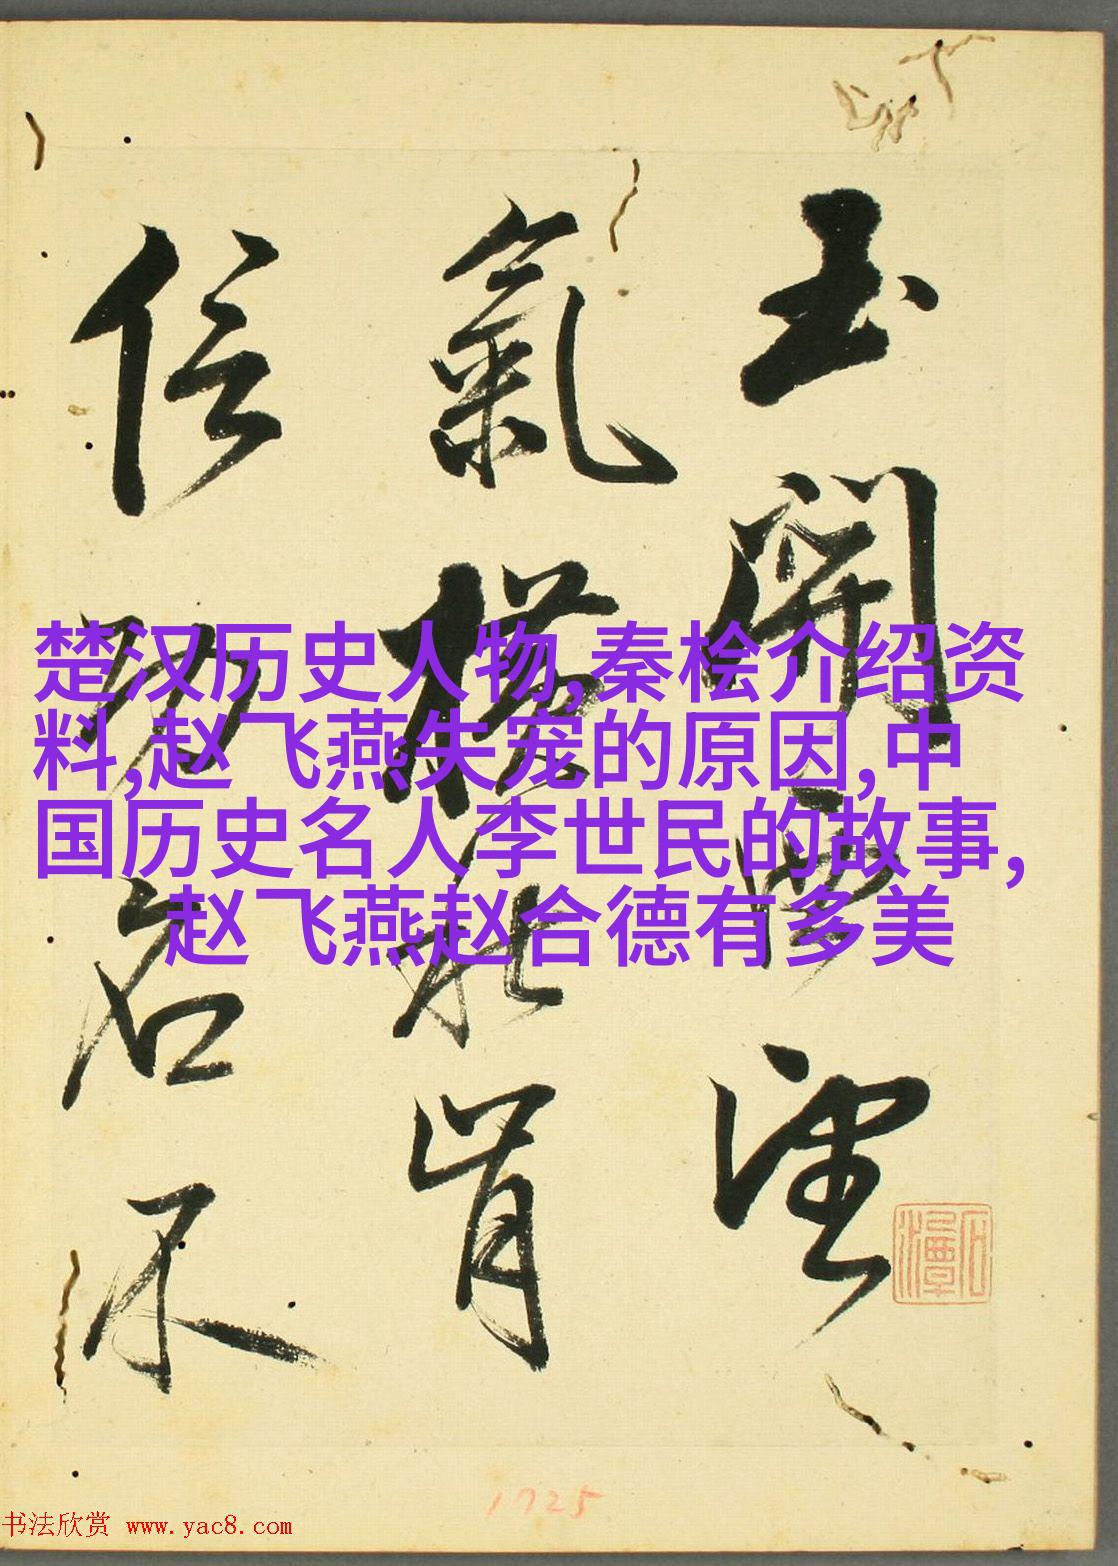 玉關西望
氣橫秋肯
信功名不
楚汉历史人物,秦桧介绍资
料,赵飞燕失宠的原因,中
国历史名人李世民的故事,
赵飞燕赵合德有多美
1725
书法欣赏 www.yac8.com